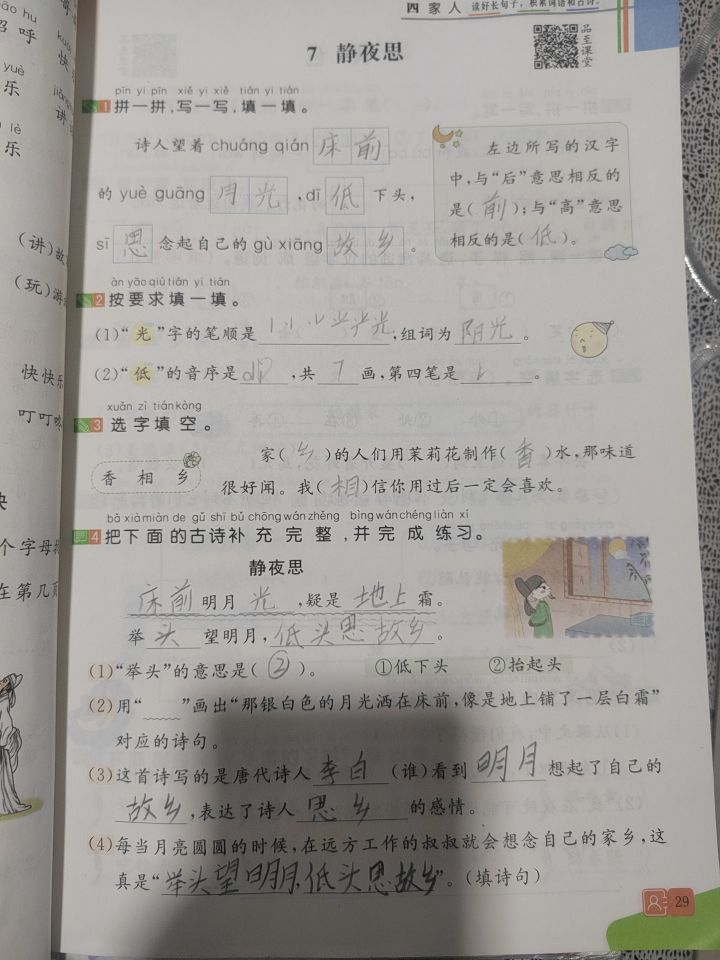 四 家人 读好长句子，积累词语和古诗。
品至课堂
7 静夜思
pīn yi pīn xiě yi xiě tián yi tián
1 拼一拼,写一写,填一填。
诗人望着 chuáng qián 床前
的 yuè guāng 月光 ,dī 低 下头,
sī 思 念起自己的 gù xiāng 故乡 。
左边所写的汉字
中,与“后”意思相反的
是(前);与“高”意思
相反的是(低)。
àn yāo qiú tián yi tián
2 按要求填一填。
(1)“光”字的笔顺是 ,组词为 阳光 。
(2)“低”的音序是 ,共 7 画,第四笔是 。
xuǎn zì tián kòng
3 选字填空。
香 相 乡
家(乡)的人们用茉莉花制作(香)水,那味道
很好闻。我(相)信你用过后一定会喜欢。
bǎ xià miàn de gǔ shī bǔ chōng wán zhěng bìng wán chéng liàn xí
4 把下面的古诗补充完整,并完成练习。
静夜思
床前明月光,疑是地上霜。
举头望明月,低头思故乡。
(1)“举头”的意思是(②)。 ①低下头 ②抬起头
(2)用“ ”画出“那银白色的月光洒在床前,像是地上铺了一层白霜”
对应的诗句。
(3)这首诗写的是唐代诗人 李白 (谁)看到 明月 想起了自己的
故乡 ,表达了诗人 思乡 的感情。
(4)每当月亮圆圆的时候,在远方工作的叔叔就会想念自己的家乡,这
真是“举头望明月,低头思故乡”。(填诗句)
29
hū
招呼
yuè
乐
lè
乐
(讲)故
(玩)游
快快乐
叮叮咚
个字母
在第几